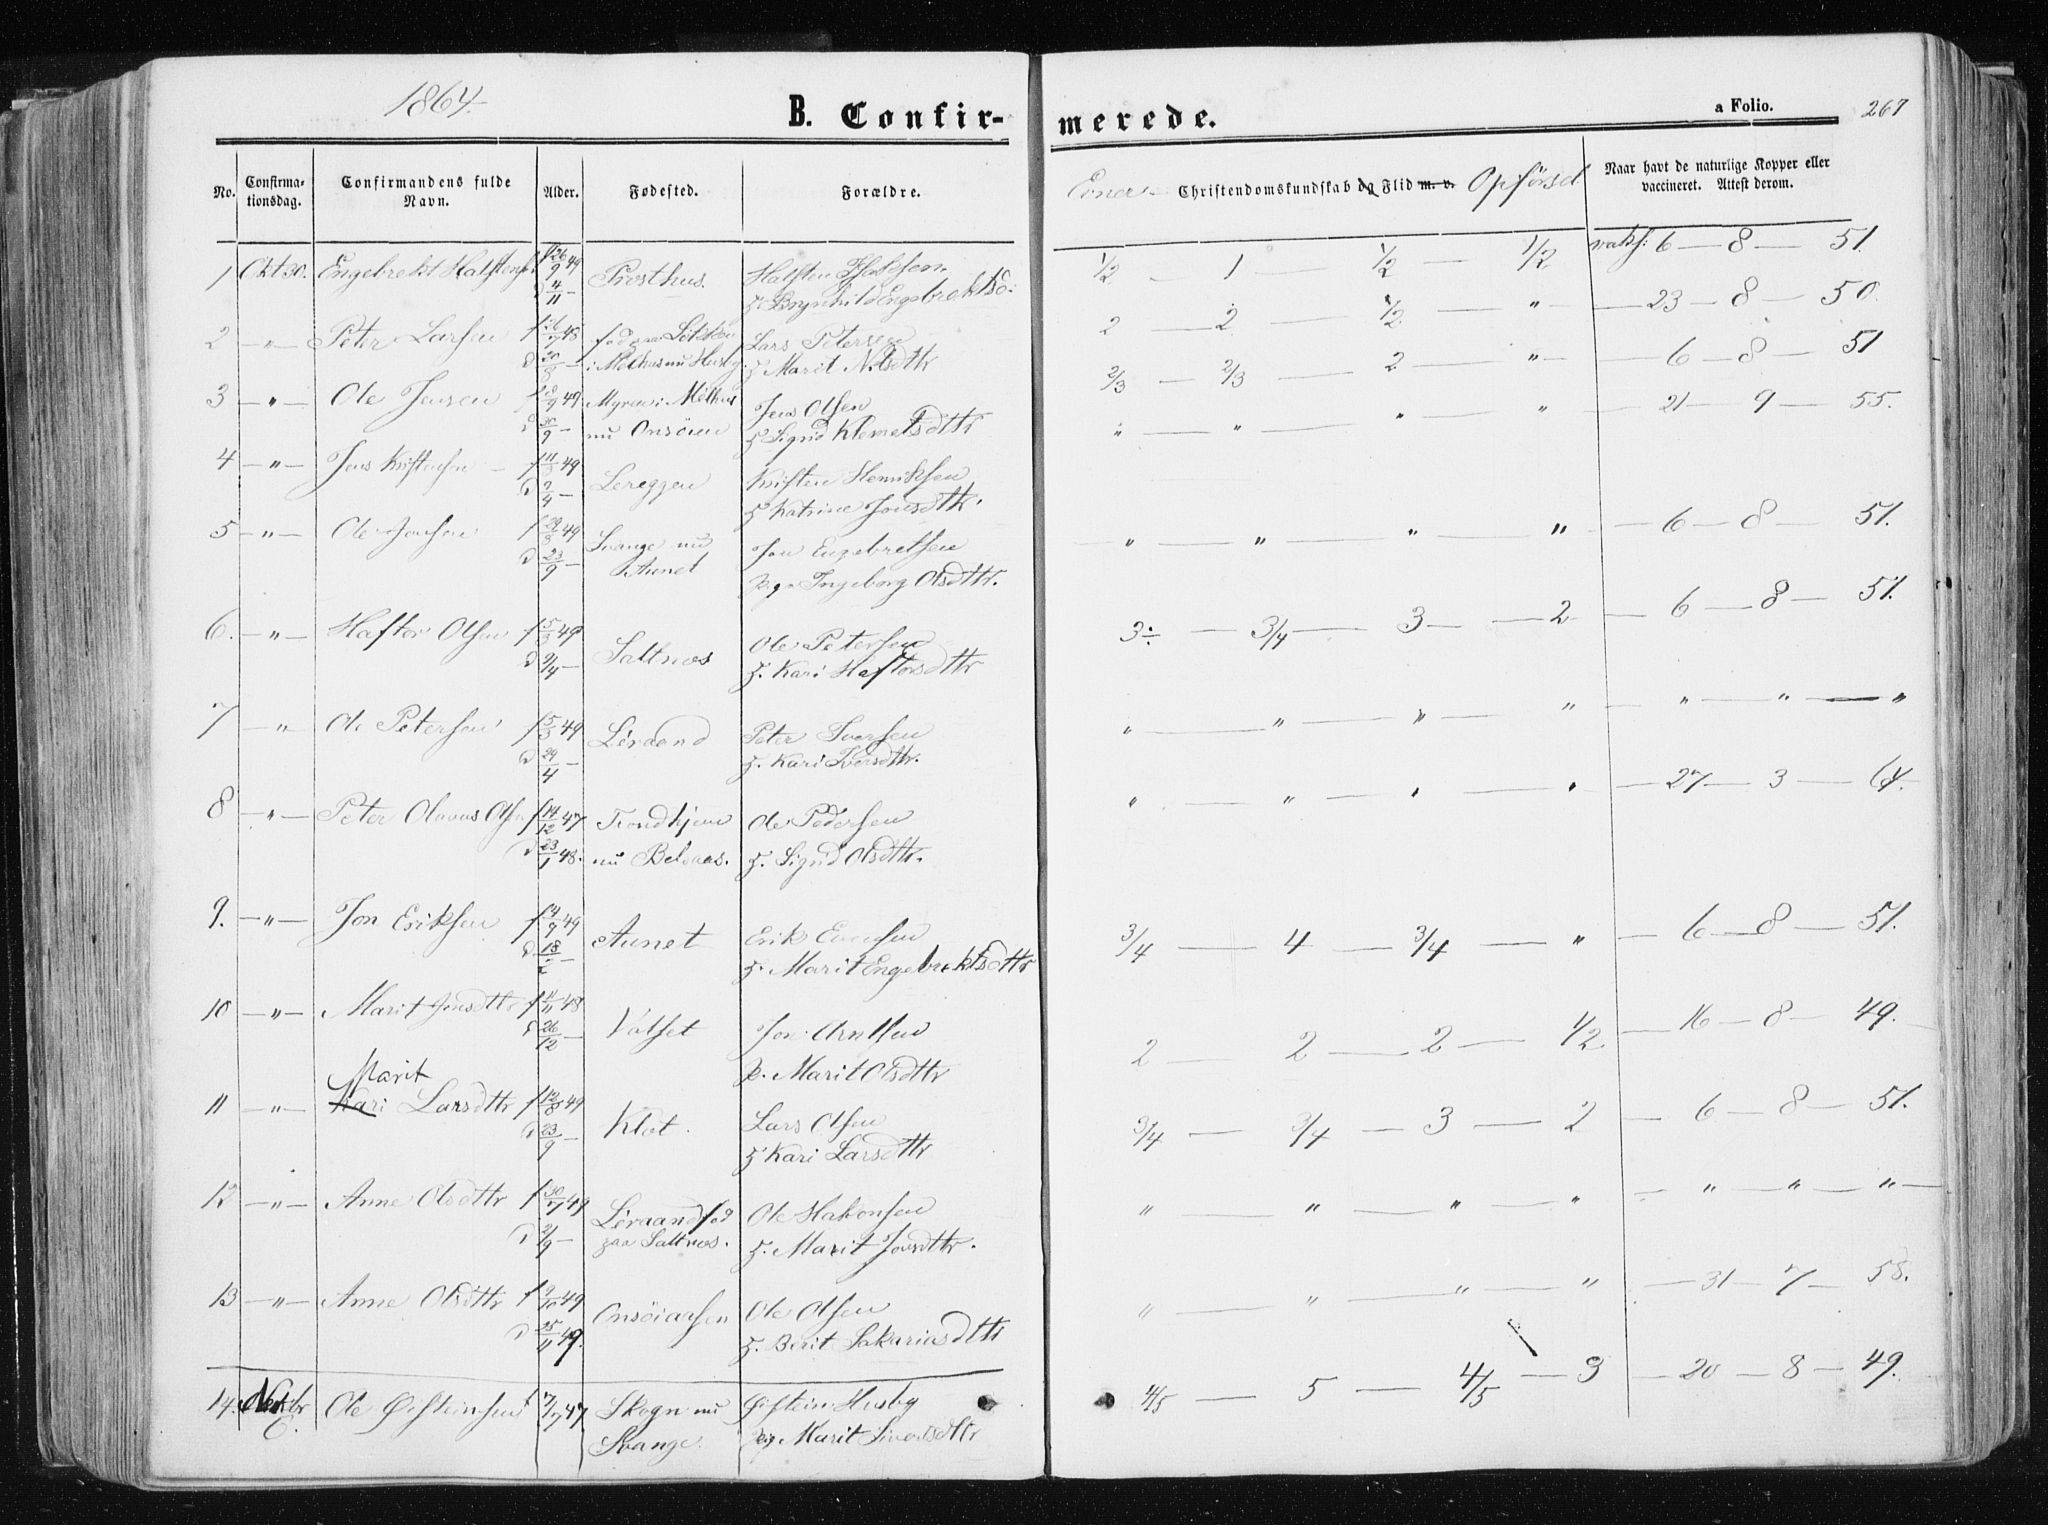 1864.
B. Confir-
merede.
a Folio.
267
No.
Confirma-
tionsdag.
Confirmandens fulde
Navn.
Alder.
Fødested.
Forældre.
Evner
Christendomskundskab og Flid m. v.
Opførsel
Naar havt de naturlige Kopper eller
vaccineret. Attest derom.
1 Okt 30. Engebrekt f 26/9 49 Præsthus. Halsten 1/2 — 1 — 1/2 — 1/2 6 — 8 — 51.
d 4/11 —
2 — " — Peter Larsen 48 Lars Petersen 2 — 2 — 1/2 — " — 23 — 8 — 50.
i Melhus nu Husby. Marit Nilsdttr
3 — " — Ole Jensen 49 Myren i Melhus Jens Olsen 2/3 — 2/3 — 2 — " — 6 — 8 — 51
d 30/9 — nu Onsöien Sigrid Klemetsdttr
4 — " — Jens Kristensen f 11/3 49 Lereggen Kristen Henriksen " — " — " — " — 21 — 9 — 55.
d 2/4 — Katrine Jonsdttr.
5 — " — Ole Jonsen 49 nu Jon Engebretsen " — " — " — " — 6 — 8 — 51.
d 23/9 — Aunet Ingeborg Olsdttr.
6. — " — Haftor Olsen f 5/3 49 Saltnæs Ole Petersen 3÷ — 3/4 — 3 — 2 — 6 — 8 — 51.
d 9/4 — Kari Haftorsdttr
7 — " — Ole Petersen f 5/3 49 Léraand Peter Iversen " — " — " — " — " — " — "
d 29/4 — Kari Iversdttr.
8 — " — Peter Olavus Olsen f 14/12 47 Trondhjem Ole Pedersen " — " — " — " — 27 — 3 — 64.
d 23/1 48. nu Belsaas. Sigrid Olsdttr.
9. — " — Jon Eriksen 49 Aunet Erik 3/4 — 4 — 3/4 — " — 6 — 8 — 51.
d 18 — Marit Engebrektsdttr
10 — " — Marit Jonsdttr f 11/11 48 Valset Jon Arntsen 2 — 2 — 2 — 1/2 — 16 — 8 — 49.
d 26/12 — Marit Olsdttr
Marit
11 — " — Kari Larsdttr f 12/8 49 Klæt. Lars Olsen 3/4 — 3/4 — 3 — 2 — 6 — 8 — 51.
d 23/9 — Kari Larsdttr
12 — " — Anne Olsdttr f 30/7 49 Léraand fød Ole Hakonsen " — " — " — " — " — " — " —
d 2/9 — paa Saltnæs. Marit Jonsdttr.
13 — " — Anne Olsdttr f 9/10 49 Onsöiaasen Ole Olsen " — " — " — " — 31 — 7 — 58.
d 25/11 49. Berit Sakariasdttr
14. Ole Øisteinsen 7/7 47 Skogn nu Øistein Husby 4/5 — 5 — 4/5 — 3 — 20 — 8 — 49.
Marit Sivertsdttr